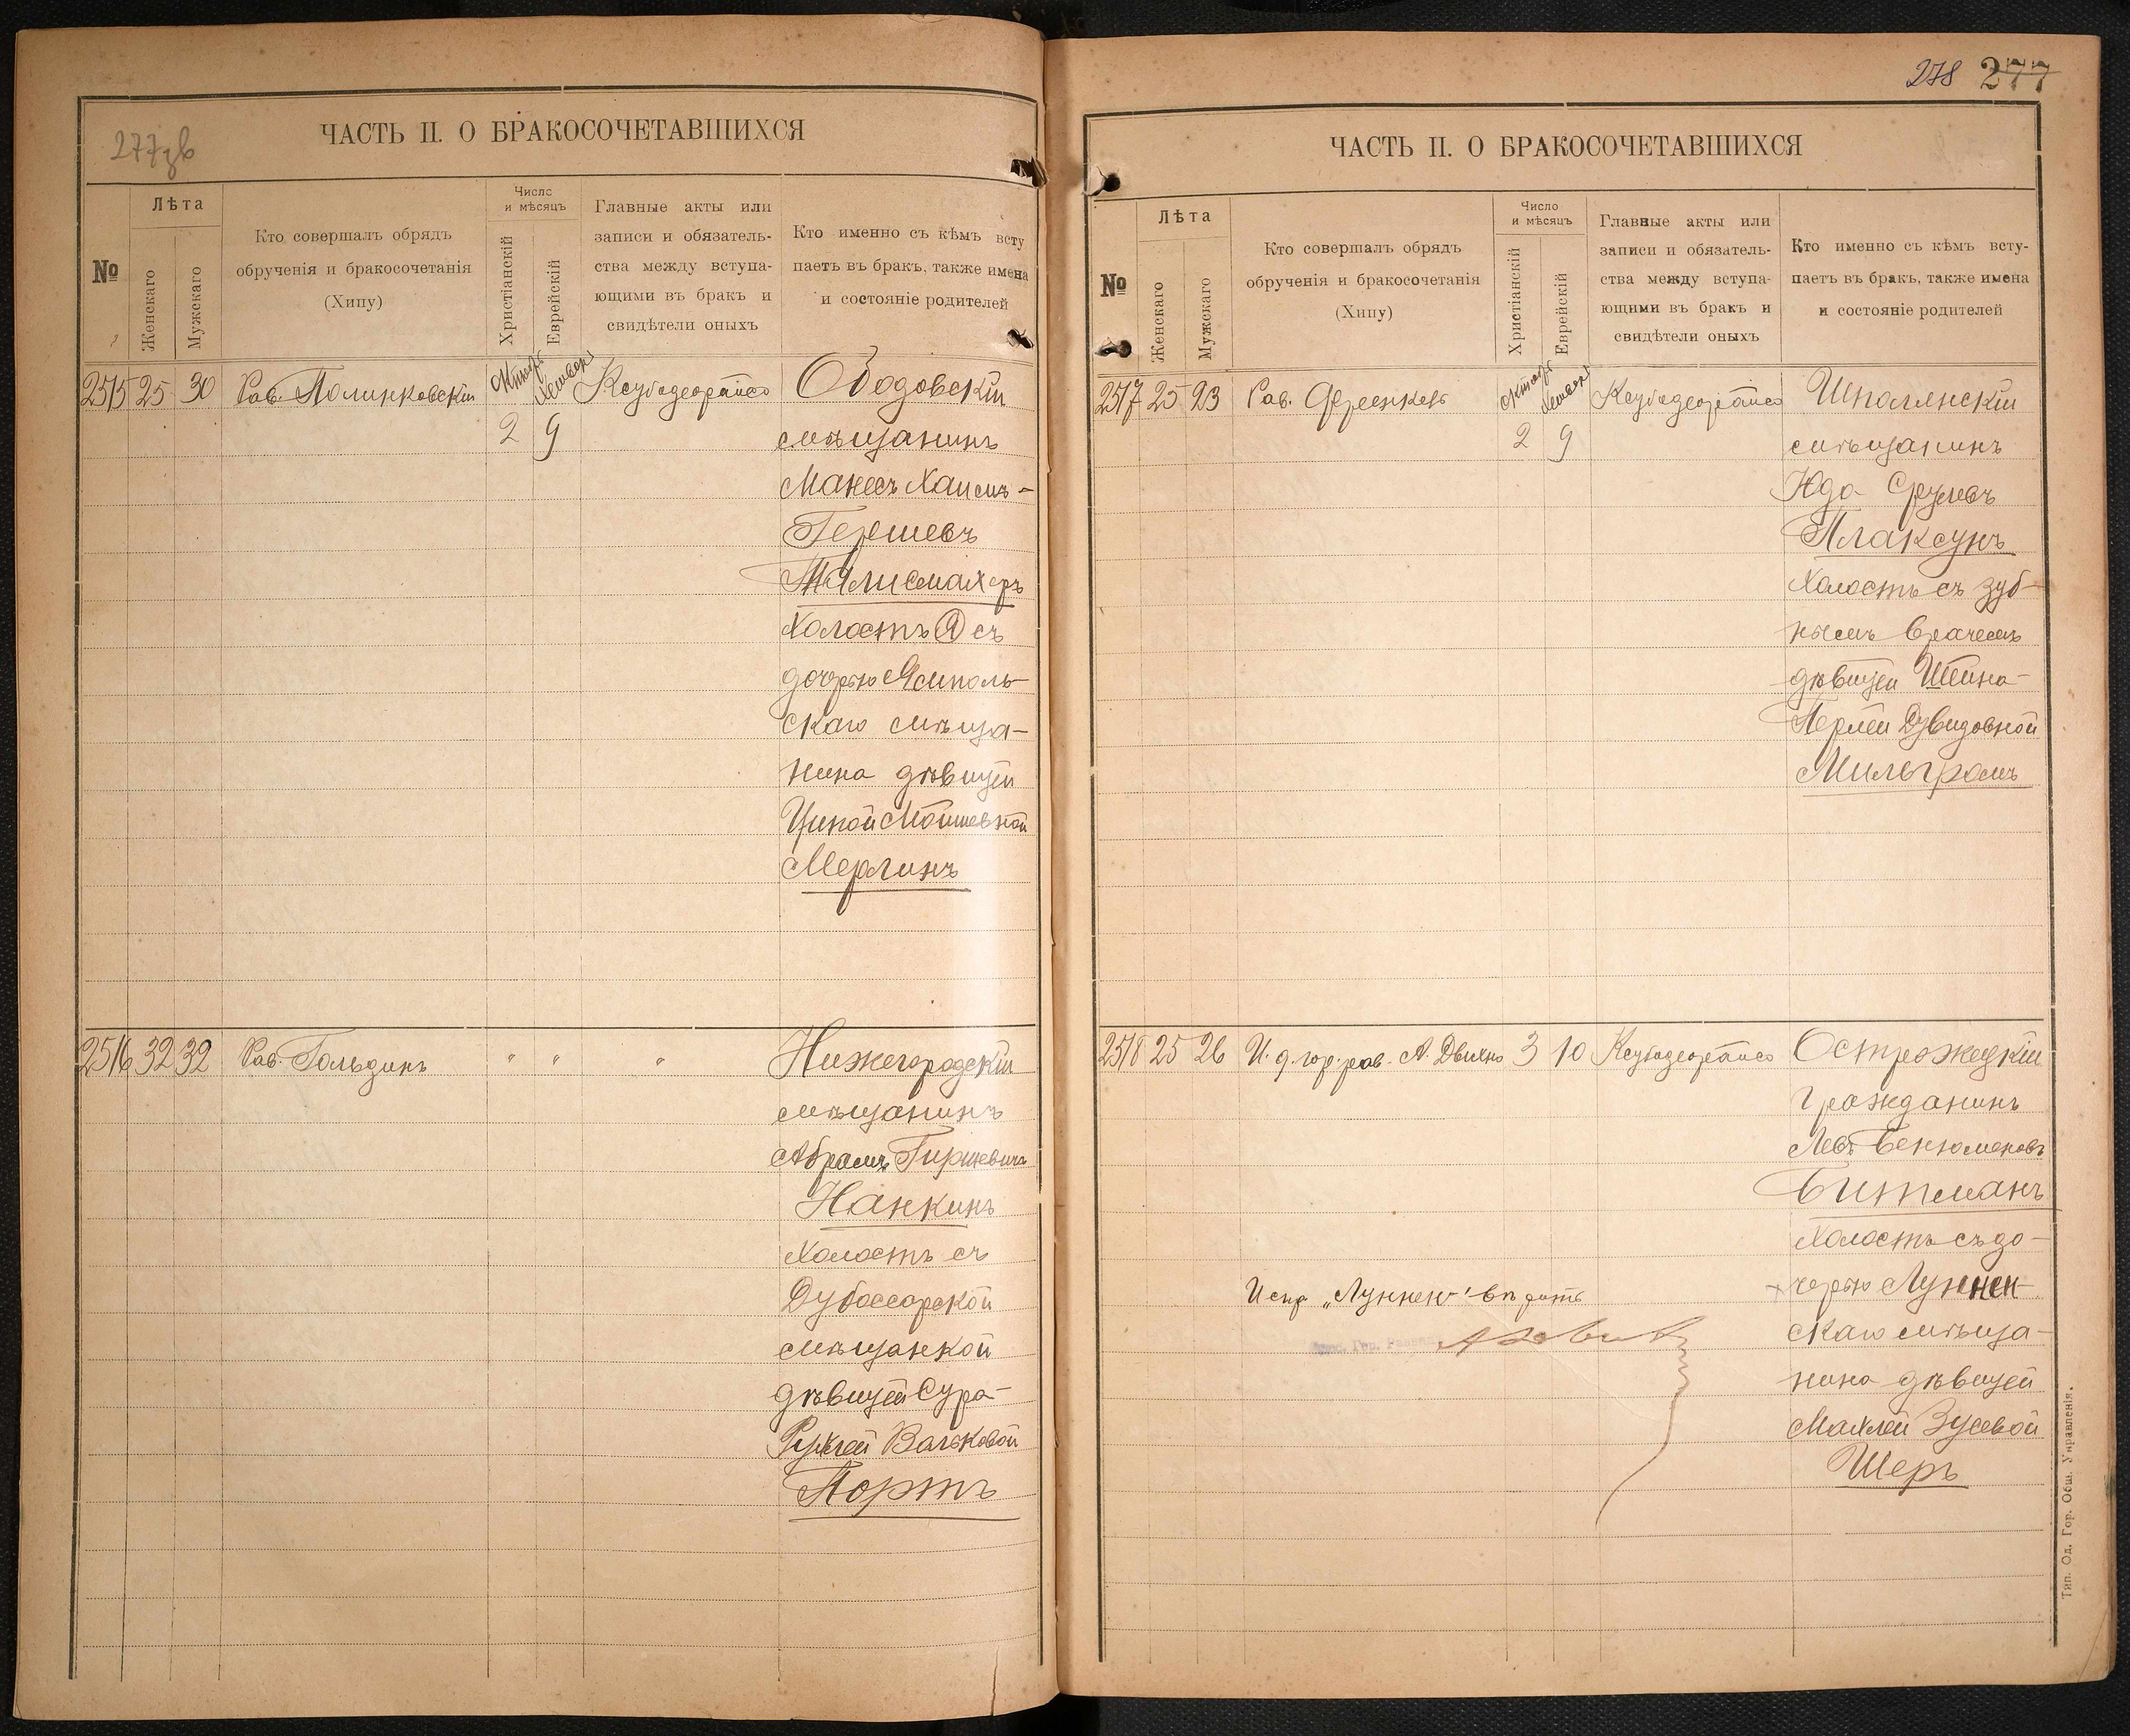 277зв
ЧАСТЬ II. О БРАКОСОЧЕТАВШИХСЯ
№
Лѣта
Женскаго
Мужскаго
Кто совершалъ обрядъ
обрученія и бракосочетанія
(Хипу)
Число
и мѣсяцъ
Христіанскій
Еврейскій
Главные акты или
записи и обязатель-
ства между вступа-
ющими въ бракъ и
свидѣтели оныхъ
Кто именно съ кѣмъ всту
паетъ въ бракъ, также имена
и состояніе родителей
2515 25 30 Рав. Полинковскій
2 9
Ободовскій
мѣщанинъ
Манесъ Хаимъ-
Гершевъ
холостъ съ
дочерью Ямполь-
скаго мѣща-
нина дѣвицей
Ципой Мошневной
Мерлинъ
2516 32 32 Рав. Гольдинъ " " " Нижегородскій
мѣщанинъ
Абрамъ Гиршевичъ
Нанкинъ
холостъ съ
Дубоссарской
мѣщанкой
дѣвицей Сура-
Рухлей Вольковой
Портъ
278 277
ЧАСТЬ II. О БРАКОСОЧЕТАВШИХСЯ
№
Лѣта
Женскаго
Мужскаго
Кто совершалъ обрядъ
обрученія и бракосочетанія
(Хипу)
Число
и мѣсяцъ
Христіанскій
Еврейскій
Главные акты или
записи и обязатель-
ства между вступа-
ющими въ бракъ и
свидѣтели оныхъ
Кто именно съ кѣмъ всту-
паетъ въ бракъ, также имена
и состояніе родителей
2517 25 23 Рав. Френкель
2 9
Шполянскій
мѣщанинъ
Юда Срулевъ
Плаксунъ
холостъ съ зуб-
нымъ врачемъ
дѣвицей Шейна-
Перлей Дувидовной
Мильгромъ
2518 25 26 И. д. гор. рав. А. 3 10 Острожецкій
гражданинъ
Левъ Бенюменовъ
Битманъ
холостъ съ до-
черью Луннен-
скаго мѣща-
нина дѣвицей
Махлей Зусевой
Шеръ
Тип. Од. Гор. Общ. Управленія.